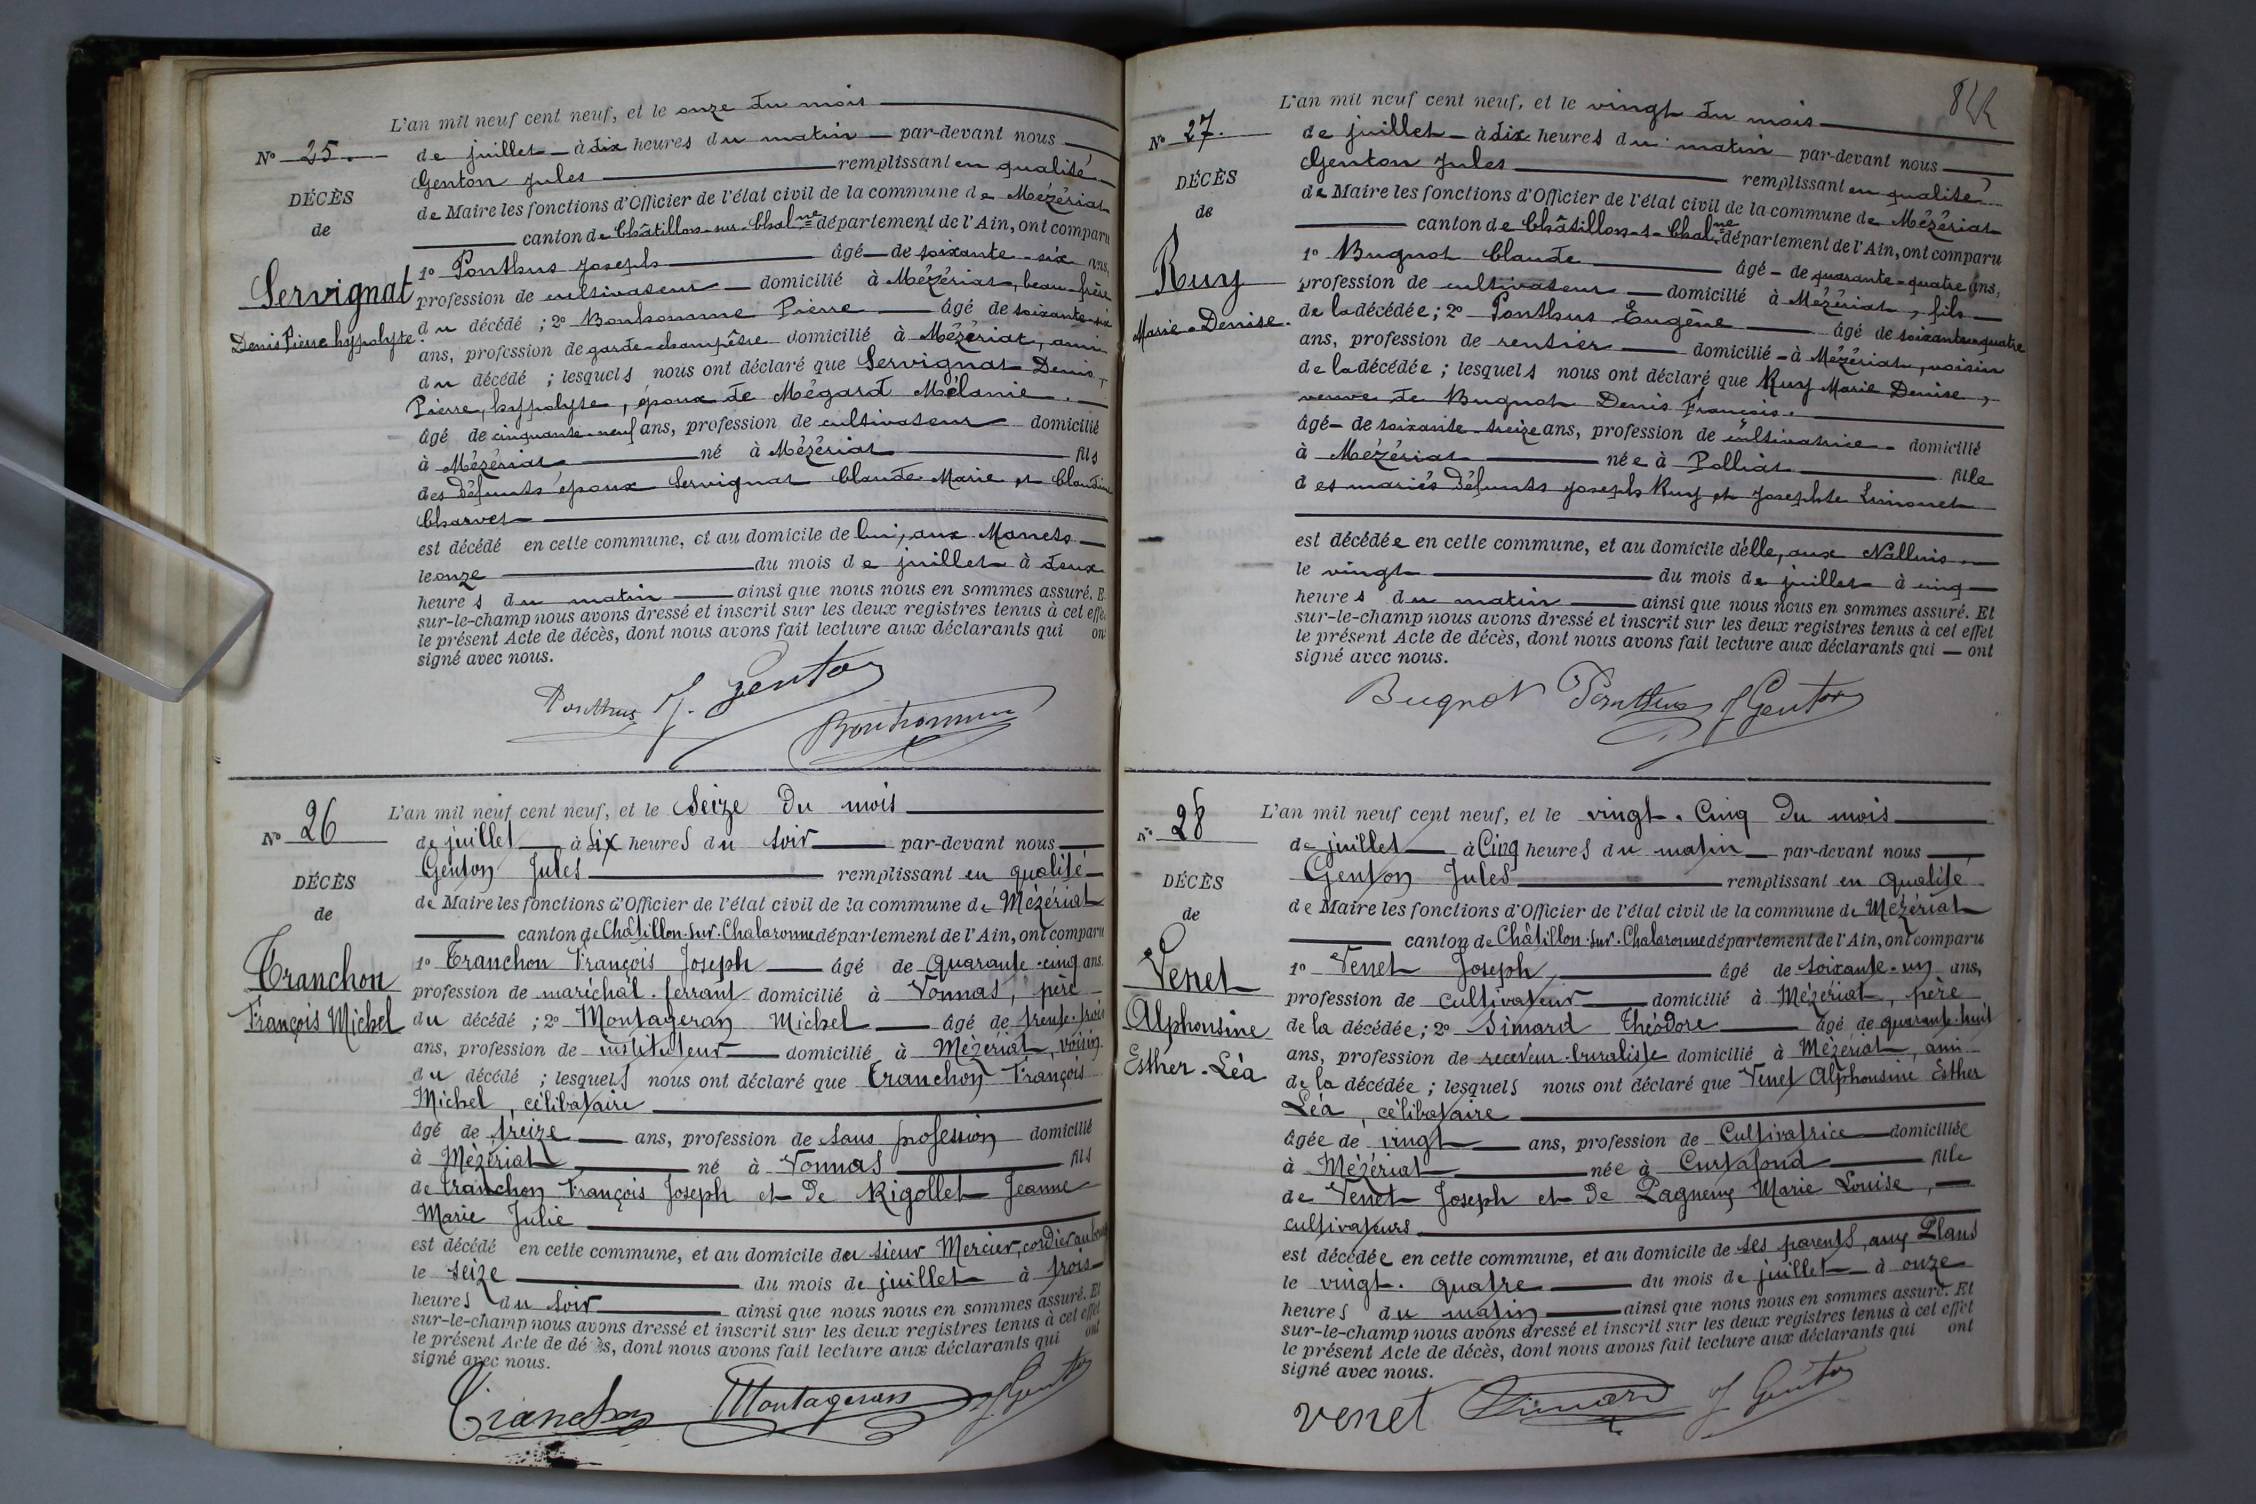 L'an mil neuf cent neuf, et le onze du mois
N° 25.
de juillet à dix heures du matin par-devant nous
Genton Jules remplissant en qualité
DÉCÈS
de Maire les fonctions d'Officier de l'état civil de la commune de Mézériat
de
canton de Châtillon-sur-Chalne département de l'Ain, ont comparu
Servignat
1° Ponthus Joseph âgé de soixante-six ans,
profession de cultivateur domicilié à Mézériat, beau-frère
Denis Pierre hyppolyte.
du décédé ; 2° Bonhomme Pierre âgé de soixante-six
ans, profession de garde-champêtre domicilié à Mézériat, ami
du décédé ; lesquels nous ont déclaré que Servignat Denis,
Pierre, hyppolyte, époux de Mégard Mélanie.
âgé de cinquante-neuf ans, profession de cultivateur domicilié
à Mézériat né à Mézériat fils
des défunts époux Servignat Claude-Marie et Claudine
Charvet
est décédé en cette commune, et au domicile de lui, aux Manets
le onze du mois de juillet à deux
heures du matin ainsi que nous nous en sommes assuré. E
sur-le-champ nous avons dressé et inscrit sur les deux registres tenus à cet effe
le présent Acte de décès, dont nous avons fait lecture aux déclarants qui on
signé avec nous.
Ponthus J. Genton
Bonhomme
L'an mil neuf cent neuf, et le Seize du mois
N° 26
de juillet à six heures du soir par-devant nous
Genton Jules remplissant en qualité
DÉCÈS
de Maire les fonctions d'Officier de l'état civil de la commune de Mézériat
de
canton de Châtillon-sur-Chalaronne département de l'Ain, ont comparu
Tranchon
1° Tranchon François Joseph âgé de quarante-cinq ans.
profession de maréchal-ferrant domicilié à Vonnas, père
François Michel
du décédé ; 2° Montageran Michel âgé de trente-trois
ans, profession de instituteur domicilié à Mézériat, voisin
du décédé ; lesquels nous ont déclaré que Tranchon François
Michel, célibataire
âgé de treize ans, profession de sans profession domicilié
à Mézériat né à Vonnas fils
de Tranchon François Joseph et de Rigollet Jeanne
Marie Julie
est décédé en cette commune, et au domicile du sieur Mercier, cordier au bourg
le seize du mois de juillet à trois
heures du soir ainsi que nous nous en sommes assuré. Et
sur-le-champ nous avons dressé et inscrit sur les deux registres tenus à cet effet
le présent Acte de décès, dont nous avons fait lecture aux déclarants qui ont
signé avec nous.
Tranchon Montageran J Genton
L'an mil neuf cent neuf, et le vingt du mois
N° 27.
de juillet à dix heures du matin par-devant nous
Genton Jules remplissant en qualité
DÉCÈS
de Maire les fonctions d'Officier de l'état civil de la commune de Mézériat
de
canton de Châtillon-s-Chalne département de l'Ain, ont comparu
Ruy
1° Bugnot Claude âgé de quarante-quatre ans,
profession de cultivateur domicilié à Mézériat, fils
Marie-Denise.
de la décédée ; 2° Ponthus Eugène âgé de soixante-quatre
ans, profession de rentier domicilié à Mézériat, voisin
de la décédée ; lesquels nous ont déclaré que Ruy Marie Denise,
veuve de Bugnot Denis François.
âgé de soixante-treize ans, profession de cultivatrice domicilié
à Mézériat née à Polliat fille
des mariés défunts Joseph Ruy et Josephte Limonet
est décédée en cette commune, et au domicile d'elle, aux Nallins
le vingt du mois de juillet à cinq
heures du matin ainsi que nous nous en sommes assuré. Et
sur-le-champ nous avons dressé et inscrit sur les deux registres tenus à cet effet
le présent Acte de décès, dont nous avons fait lecture aux déclarants qui ont
signé avec nous.
Bugnot Ponthus J Genton
L'an mil neuf cent neuf, et le vingt-Cinq du mois
N° 28
de juillet à Cinq heures du matin par-devant nous
Genton Jules remplissant en qualité
DÉCÈS
de Maire les fonctions d'Officier de l'état civil de la commune de Mézériat
de
canton de Châtillon-sur-Chalaronne département de l'Ain, ont comparu
Venet
1° Venet Joseph, âgé de soixante-un ans,
profession de cultivateur domicilié à Mézériat, père
Alphonsine
de la décédée ; 2° Simard Théodore âgé de quarante-huit
ans, profession de receveur-buraliste domicilié à Mézériat, ami
Esther-Léa
de la décédée ; lesquels nous ont déclaré que Venet Alphonsine Esther
Léa, célibataire
âgée de vingt ans, profession de Cultivatrice domiciliée
à Mézériat née à Curtafond fille
de Venet Joseph et de Pagneux Marie Louise,
cultivateurs
est décédée en cette commune, et au domicile de ses parents, aux Plans
le vingt-quatre du mois de juillet à onze
heures du matin ainsi que nous nous en sommes assuré. Et
sur-le-champ nous avons dressé et inscrit sur les deux registres tenus à cet effet
le présent Acte de décès, dont nous avons fait lecture aux déclarants qui ont
signé avec nous.
Venet Simard J Genton